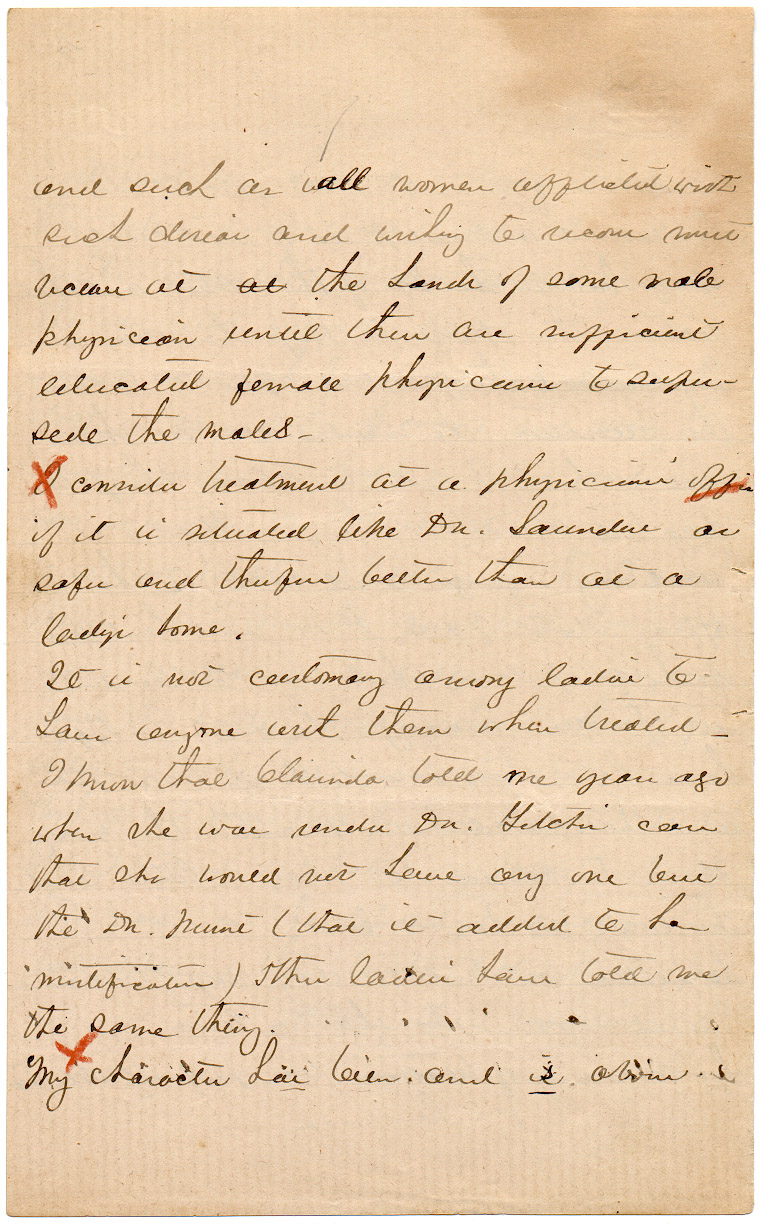 and such as all women afflicted with
such disease and wishing to recover must
receive at at the hands of some male
physician until there are sufficient
educated female physicians to super-
sede the males-
I consider treatment at a physicians office
if it is situated like Dr. Saunders as
safe and therefore better than at a
ladys home.
It is not customary among ladies to
have anyone with them when treated-
I know that Claurinda told me years ago
when she was under Dr. care
that she would not have any one but
the Dr. present (that it added to her
mortification) Other ladies have told me
the same thing.
My character has been and is above